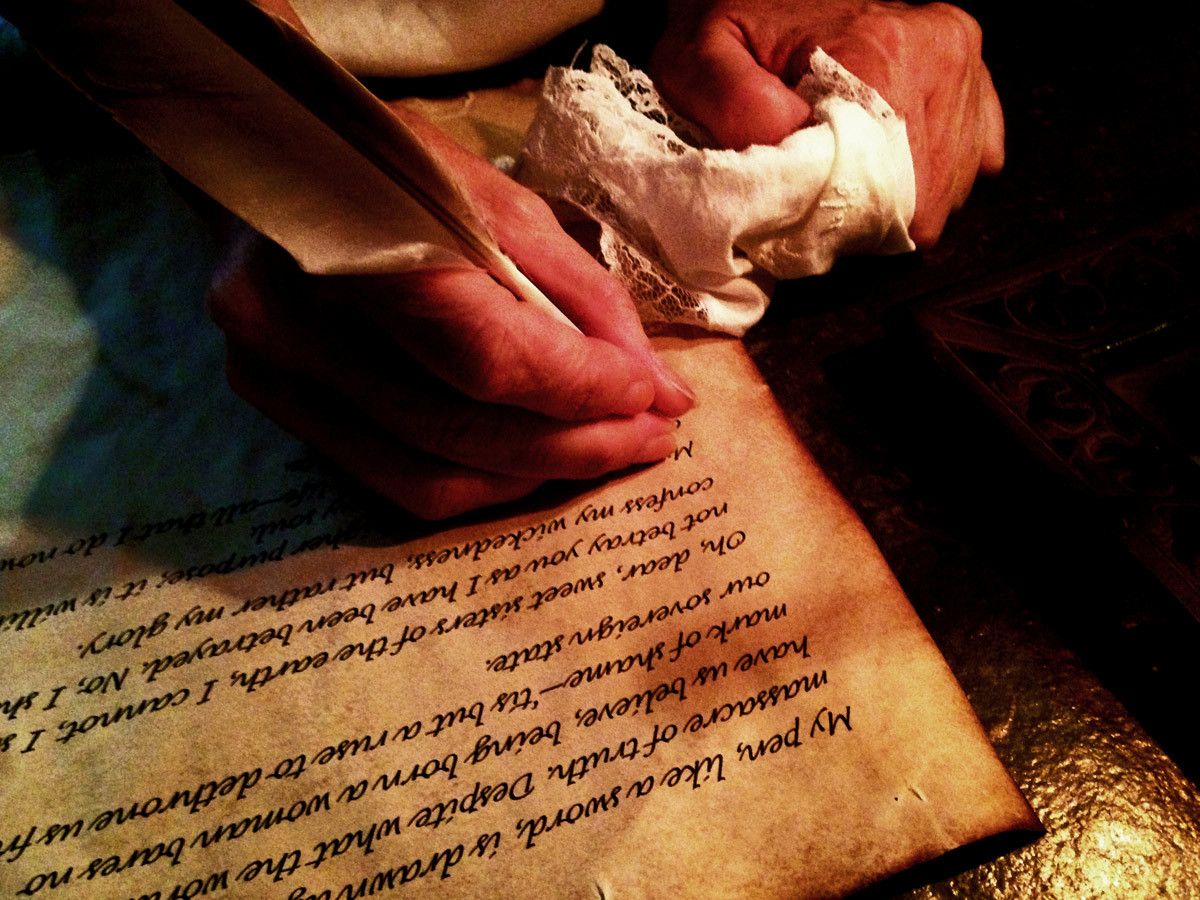 My pen, like a sword, is drawn
massacre of truth. Despite what the
have us believe, being born a woman bares no
mark of shame—'tis but a ruse to dethrone us
our sovereign state.
Oh, dear, sweet sisters of the earth, I cannot, I
not betray you as I have been betrayed. No, I
confess my wickedness, but rather my glory.
purpose; it is
soul.
life—all that I do now